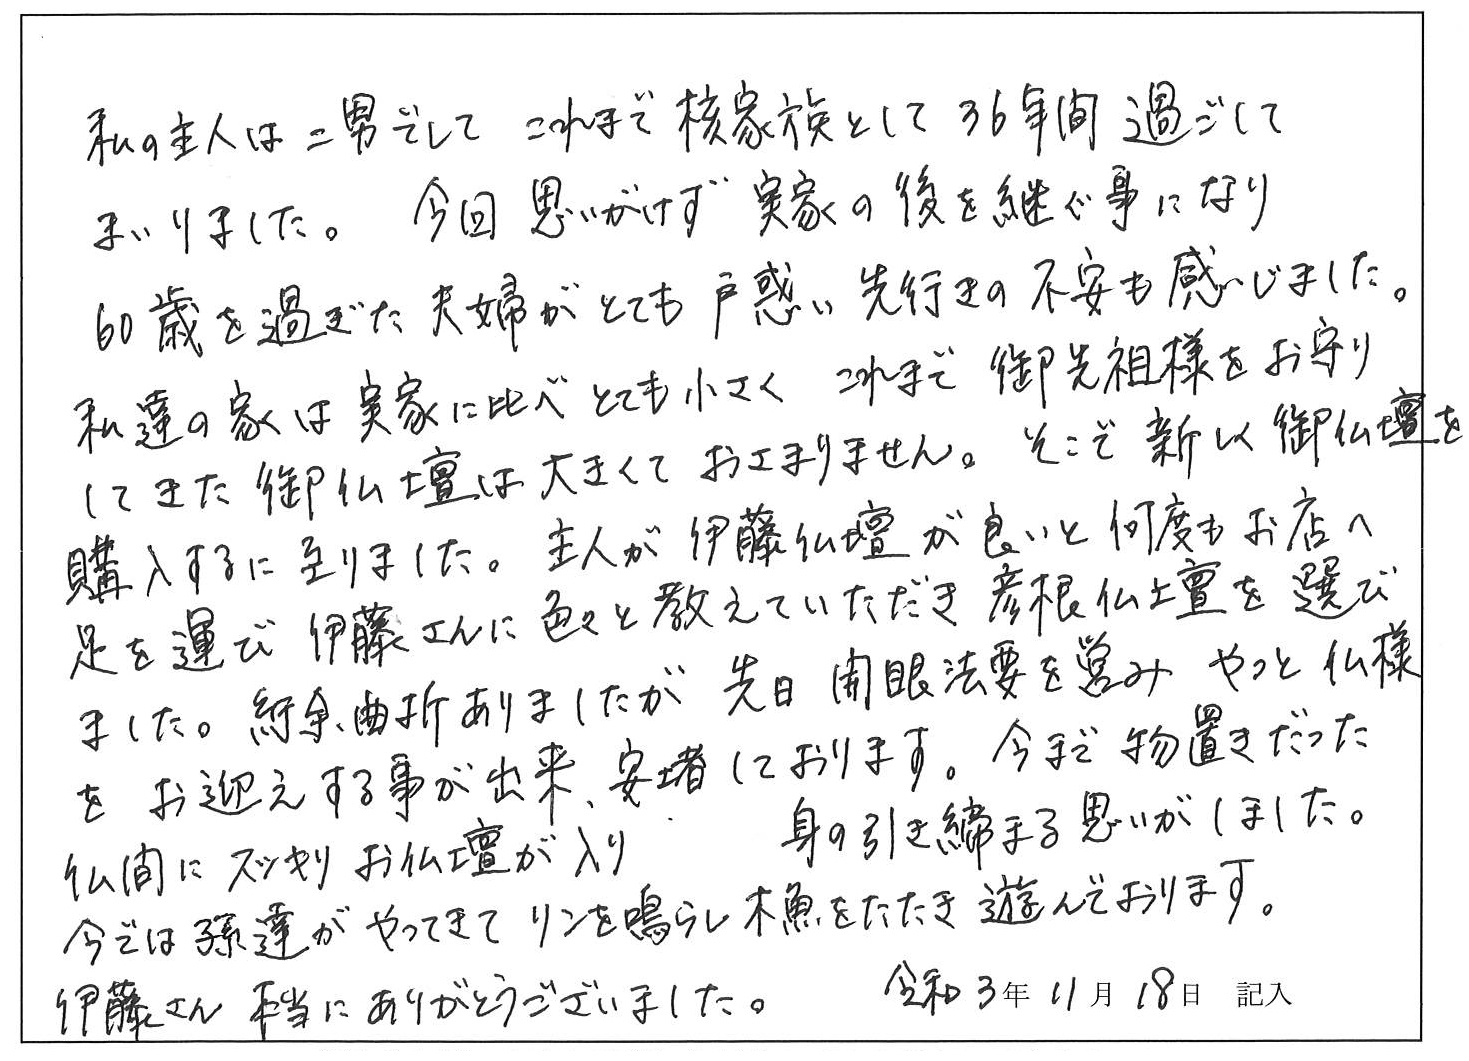 私の主人は二男でして これまで核家族として36年間過ごして
まいりました。 今回思いがけず実家の後を継ぐ事になり
60歳を過ぎた夫婦がとても戸惑い先行きの不安も感いじました。
私達の家は実家に比べとても小さく これまで御先祖様をお守り
してきた御仏壇は大きくておさまりません。そこで新しく御仏壇を
購入するに至りました。主人が伊藤仏壇が良いと何度もお店へ
足を運び伊藤さんに色々と教えていただき彦根仏壇を選び
ました。紆余曲折ありましたが先日開眼法要を営みやっと仏様
をお迎えする事が出来、安堵しております。今まで物置きだった
仏間にスッキリお仏壇が入り 身の引き締まる思いがしました。
今では孫達がやってきてリンを鳴らし木魚をたたき遊んでおります。
伊藤さん本当にありがとうございました。 令和3年11月18日 記入